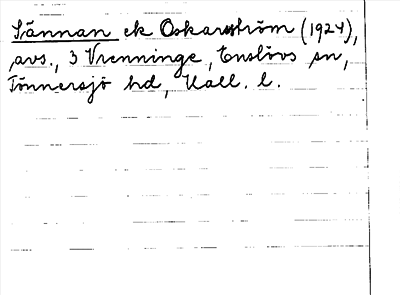 Sännan ek Oskarström (1924),
avs., 3 Vrenninge, Enslövs sn,
Tönnersjö hd, Hall. l.